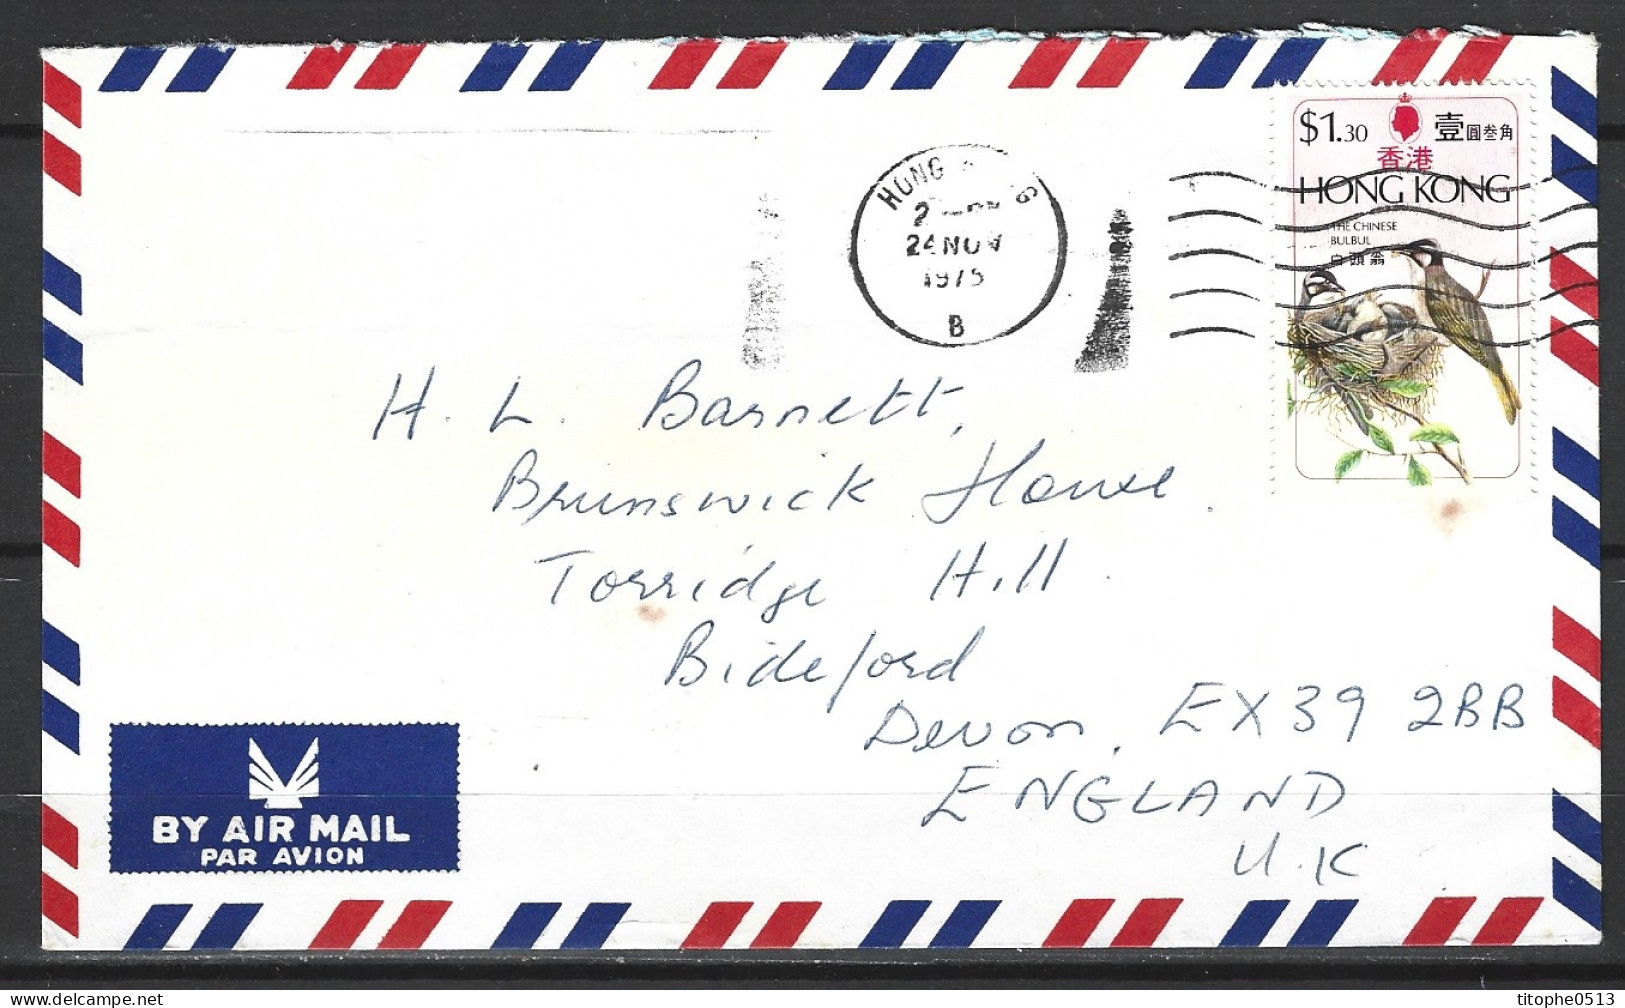 $1.30 壹圓叁角
香港
HONG KONG
THE CHINESE
BULBUL
白頭翁
HONG
24 NOV
1975
B
H. L. Barnett,
Brunswick House.
Torridge Hill.
Bideford
Devon, EX39 2BB
ENGLAND
U.K
BY AIR MAIL
PAR AVION
delcampe.net
titophe0513